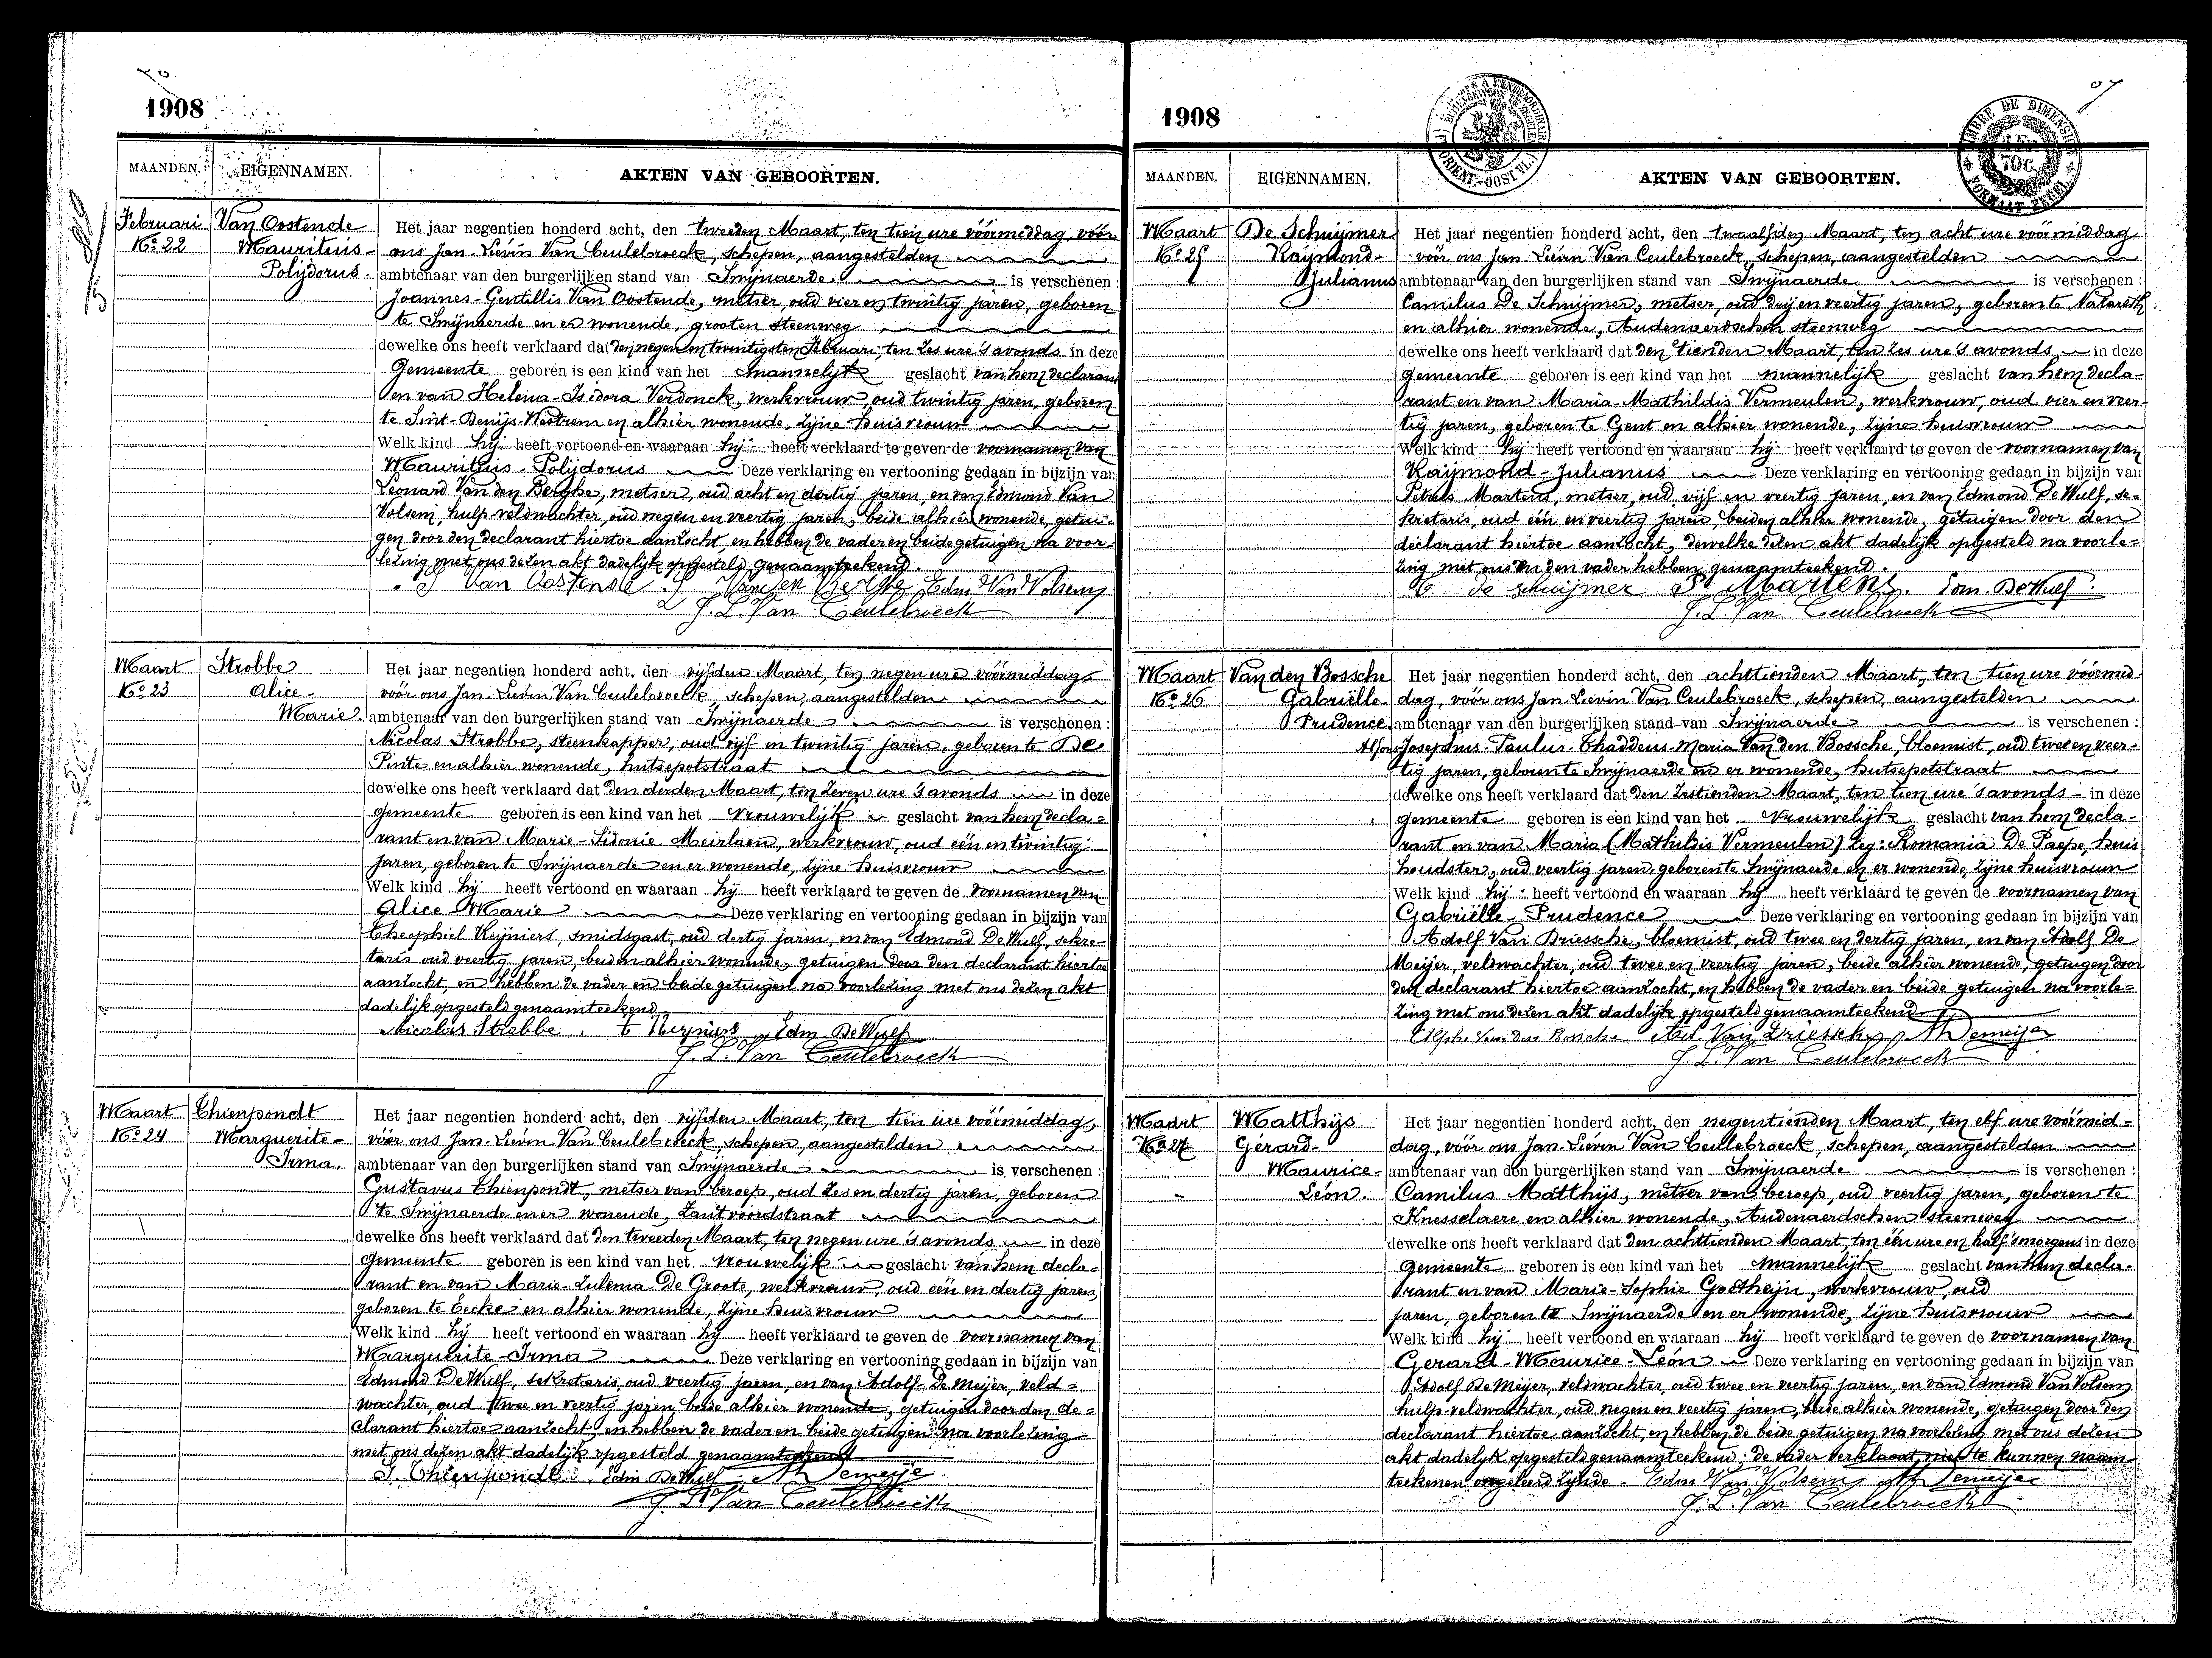 1908
MAANDEN. EIGENNAMEN. AKTEN VAN GEBOORTEN.
Februari Van Oostende Het jaar negentien honderd acht, den tweeden Maart, ten tien ure vóórmiddag, vóór
No 22 Mauritius- ons Jan-Lievin Van Ceulebroeck, schepen, aangestelden
Polijdorus. ambtenaar van den burgerlijken stand van Swijnaerde is verschenen:
Joannes-Gentillis Van Oostende, metser, oud vier en twintig jaren, geboren
te Swijnaerde en er wonende, grooten steenweg
dewelke ons heeft verklaard dat den negen en twintigsten Februari, ten zes ure 's avonds in deze
Gemeente geboren is een kind van het mannelijk geslacht van hem declarant
en van Helena-Isidora Verdonck, werkvrouw, oud twintig jaren, geboren
te Sint-Denijs-Westrem en alhier wonende, zijne huisvrouw
Welk kind hij heeft vertoond en waaraan hij heeft verklaard te geven de voornamen van
Mauritius-Polijdorus Deze verklaring en vertooning gedaan in bijzijn van
Leonard Van den Berghe, metser, oud acht en dertig jaren, en van Edmond Van
Volsem, hulp-veldwachter, oud negen en veertig jaren, beide alhier wonende, getui-
gen door den declarant hiertoe aanzocht, en hebben de vader en beide getuigen na voor-
lezing met ons dezen akt dadelijk opgesteld genaamteekend.
Van Oostende Van den Berghe Edm Van Volsem
J. L. Van Ceulebroeck
Maart Strobbe Het jaar negentien honderd acht, den vijfden Maart, ten negen ure vóórmiddag
No 23 Alice- vóór ons Jan-Lievin Van Ceulebroeck, schepen, aangestelden
Marie. ambtenaar van den burgerlijken stand van Swijnaerde is verschenen:
Nicolas Strobbe, steenkapper, oud vijf en twintig jaren, geboren te De
Pinte en alhier wonende, hutsepotstraat
dewelke ons heeft verklaard dat den derden Maart, ten zeven ure 's avonds in deze
gemeente geboren is een kind van het vrouwelijk geslacht van hem decla-
rant en van Marie-Sidonie Meirlaen, werkvrouw, oud één en twintig
jaren, geboren te Swijnaerde en er wonende, zijne huisvrouw
Welk kind hij heeft vertoond en waaraan hij heeft verklaard te geven de voornamen van
Alice Marie Deze verklaring en vertooning gedaan in bijzijn van
Theophiel Reijniers, smidsgast, oud dertig jaren, en van Edmond De Wulf, sekre-
taris oud veertig jaren, beiden alhier wonende, getuigen door den declarant hiertoe
aanzocht, en hebben de vader en beide getuigen na voorlezing met ons dezen akt
dadelijk opgesteld genaamteekend
Nicolas Strobbe. Edm. De Wulf
J. L. Van Ceulebroeck
Maart Thienpondt Het jaar negentien honderd acht, den vijfden Maart, ten tien ure vóórmiddag,
No 24 Marguerite- vóór ons Jan-Lievin Van Ceulebroeck, schepen, aangestelden
Irma. ambtenaar van den burgerlijken stand van Swijnaerde is verschenen:
Gustavus Thienpondt, metser van beroep, oud zes en dertig jaren, geboren
te Swijnaerde en er wonende, Zantvoordstraat
dewelke ons heeft verklaard dat den tweeden Maart, ten negen ure 's avonds in deze
gemeente geboren is een kind van het vrouwelijk geslacht van hem decla-
rant en van Marie-Zulema De Groote, werkvrouw, oud één en dertig jaren,
geboren te Eecke en alhier wonende, zijne huisvrouw
Welk kind hij heeft vertoond en waaraan hij heeft verklaard te geven de voornamen van
Marguerite-Irma Deze verklaring en vertooning gedaan in bijzijn van
Edmond De Wulf, sekretaris, oud veertig jaren, en van Adolf De Meijer, veld-
wachter, oud twee en veertig jaren, beide alhier wonende, getuigen door den de-
clarant hiertoe aanzocht, en hebben de vader en beide getuigen na voorlezing
met ons dezen akt dadelijk opgesteld genaamteekend
Thienpondt. Edm De Wulf A Demeije
J. L. Van Ceulebroeck
1908
MAANDEN. EIGENNAMEN. AKTEN VAN GEBOORTEN.
Maart De Schuijmer Het jaar negentien honderd acht, den twaalfden Maart, ten acht ure vóórmiddag
No 25 Raijmond- vóór ons Jan Lievin Van Ceulebroeck, schepen, aangestelden
Julianus ambtenaar van den burgerlijken stand van Swijnaerde is verschenen:
Camilus De Schuijmer, metser, oud drij en veertig jaren, geboren te Nazareth
en alhier wonende, Audenaerdschen steenweg
dewelke ons heeft verklaard dat den tienden Maart, ten zes ure 's avonds in deze
gemeente geboren is een kind van het mannelijk geslacht van hem decla-
rant en van Maria-Mathildis Vermeulen, werkvrouw, oud vier en veer-
tig jaren, geboren te Gent en alhier wonende, zijne huisvrouw
Welk kind hij heeft vertoond en waaraan hij heeft verklaard te geven de voornamen van
Raijmond-Julianus Deze verklaring en vertooning gedaan in bijzijn van
Petrus Martens, metser, oud vijf en veertig jaren, en van Edmond De Wulf, se-
kretaris, oud één en veertig jaren, beiden alhier wonende, getuigen door den
declarant hiertoe aanzocht, dewelke dezen akt dadelijk opgesteld na voorle-
zing met ons en den vader hebben genaamteekend.
C de schuijmer P Martens. Edm. De Wulf.
J. L. Van Ceulebroeck
Maart Van den Bossche Het jaar negentien honderd acht, den achttienden Maart, ten tien ure vóórmid-
No 26 Gabriëlle- dag, vóór ons Jan-Lievin Van Ceulebroeck, schepen, aangestelden
Prudence. ambtenaar van den burgerlijken stand van Swijnaerde is verschenen:
Alfons Josephus-Paulus-Thaddeus-Maria Van den Bossche, bloemist, oud twee en veer-
tig jaren, geboren te Swijnaerde en er wonende, hutsepotstraat
dewelke ons heeft verklaard dat den zestienden Maart, ten tien ure 's avonds in deze
gemeente geboren is een kind van het vrouwelijk geslacht van hem decla-
rant en van Maria (Mathildis Vermeulen) zeg: Romania De Paepe, huis
houdster, oud veertig jaren, geboren te Swijnaerde en er wonende, zijne huisvrouw
Welk kind hij heeft vertoond en waaraan hij heeft verklaard te geven de voornamen van
Gabriëlle-Prudence Deze verklaring en vertooning gedaan in bijzijn van
Adolf Van Driessche, bloemist, oud twee en dertig jaren, en van Adolf De
Meijer, veldwachter, oud twee en veertig jaren, beide alhier wonende, getuigen door
den declarant hiertoe aanzocht, en hebben de vader en beide getuigen na voorle-
zing met ons dezen akt dadelijk opgesteld genaamteekend
Alph. Van den Bossche Ad. Van Driessche A Demeije
J. L. Van Ceulebroeck
Maart Matthijs Het jaar negentien honderd acht, den negentienden Maart, ten elf ure vóórmid-
No 27 Gérard- dag, vóór ons Jan-Lievin Van Ceulebroeck, schepen, aangestelden
Maurice- ambtenaar van den burgerlijken stand van Swijnaerde is verschenen:
Léon. Camilus Matthijs, metser van beroep, oud veertig jaren, geboren te
Knesselaere en alhier wonende, Audenaerdschen steenweg
dewelke ons heeft verklaard dat den achttienden Maart, ten één ure en half 's morgens in deze
gemeente geboren is een kind van het mannelijk geslacht van hem decla-
rant en van Marie-Sophie Goetheijn, werkvrouw, oud
jaren, geboren te Swijnaerde en er wonende, zijne huisvrouw
Welk kind hij heeft vertoond en waaraan hij heeft verklaard te geven de voornamen van
Gerard-Maurice-Léon Deze verklaring en vertooning gedaan in bijzijn van
Adolf De Meijer, veldwachter, oud twee en veertig jaren, en van Edmond Van Volsem
hulp-veldwachter, oud negen en veertig jaren, beide alhier wonende, getuigen door den
declarant hiertoe aanzocht, en hebben de beide getuigen na voorlezing met ons dezen
akt dadelijk opgesteld genaamteekend; de vader verklaart niet te kunnen naam-
teekenen ongeleerd zijnde. Edm Van Volsem A Demeijer
J. L. Van Ceulebroeck